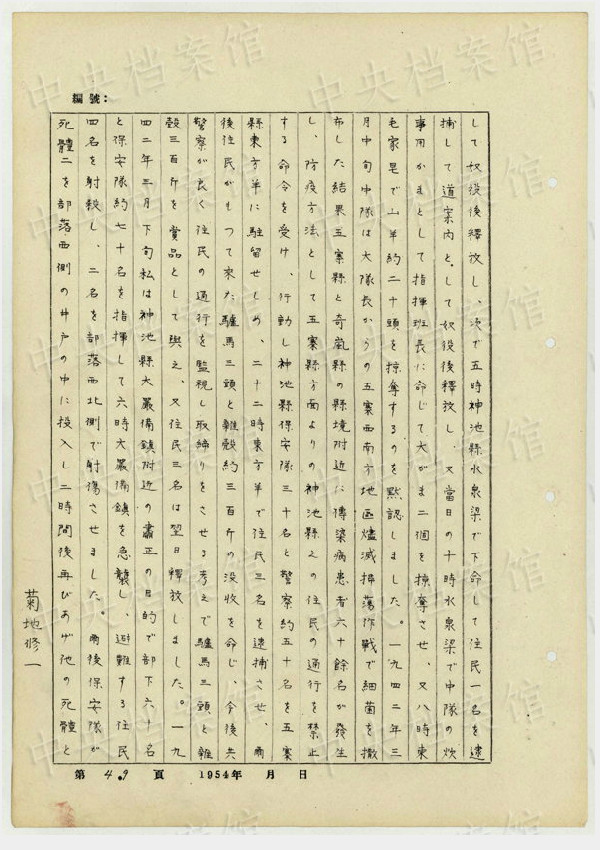 編號：
して奴役後釋放し、次で五時神池縣水泉梁で下命して住民一名を逮
捕して道案内と。して奴役後釋放し、又當日の十時水泉梁で中隊の炊
事用かまとして指揮班長に命じて大がま二個を掠奪させ、又八時東
毛家皂で山羊約二十頭を掠奪するのを黙認しました。一九四二年三
月中旬中隊は大隊長からの五寨西南方地区燼滅掃蕩作戰で細菌を撒
布した結果五寨縣と奇嵐縣の縣境附近に傳染病患者六十餘名が發生
し、防疫方法として五寨縣方面よりの神池縣えの住民の通行を禁止
する命令を受け、行動し神池縣保安隊三十名と警察約五十名を五寨
縣東方羊に駐留せしめ、二十二時東方羊で住民三名を逮捕させ、爾
後住民がもつて來た驢馬三頭と雜穀約三百斤の没收を命じ、今後共
警察が良く住民の通行を監視し取締りをさせる考えで驢馬三頭と雜
穀三百斤を賞品として與え、又住民三名は翌日釋放しました。一九
四二年三月下旬私は神池縣大嚴備鎮附近の肅正の目的で部下六十名
と保安隊約七十名を指揮して六時大嚴備鎮を急襲し、避難する住民
四名を射殺し、二名を部落西北側で射傷させました。爾後保安隊が
死體二を部落西側の井戸の中に投入し二時間後再びあげ他の死體と
菊地修一
第 49 頁 1954年 月 日
中央档案馆